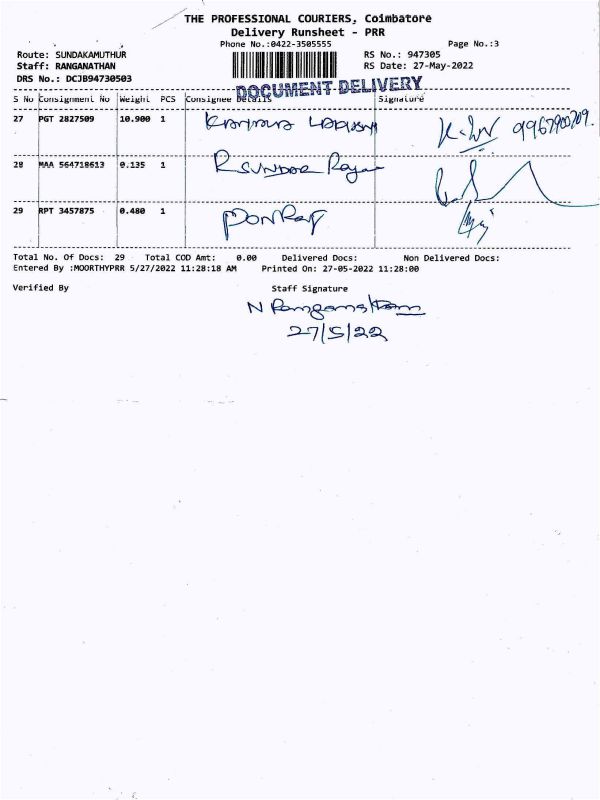 THE PROFESSIONAL COURIERS, Coimbatore
Delivery Runsheet - PRR
Phone No.:0422-3505555 Page No.:3
Route: SUNDAKAMUTHUR RS No.: 947305
Staff: RANGANATHAN RS Date: 27-May-2022
DRS No.: DCJB94730503
DOCUMENT DELIVERY
S No Consignment No Weight PCS Consignee Details Signature
27 PGT 2827509 10.900 1
28 MAA 564718613 0.135 1 R SUNDOR Raja
29 RPT 3457875 0.480 1 PONRAJ
Total No. Of Docs: 29 Total COD Amt: 0.00 Delivered Docs: Non Delivered Docs:
Entered By :MOORTHYPRR 5/27/2022 11:28:18 AM Printed On: 27-05-2022 11:28:00
Verified By Staff Signature
N Ranganathan
27/5/22